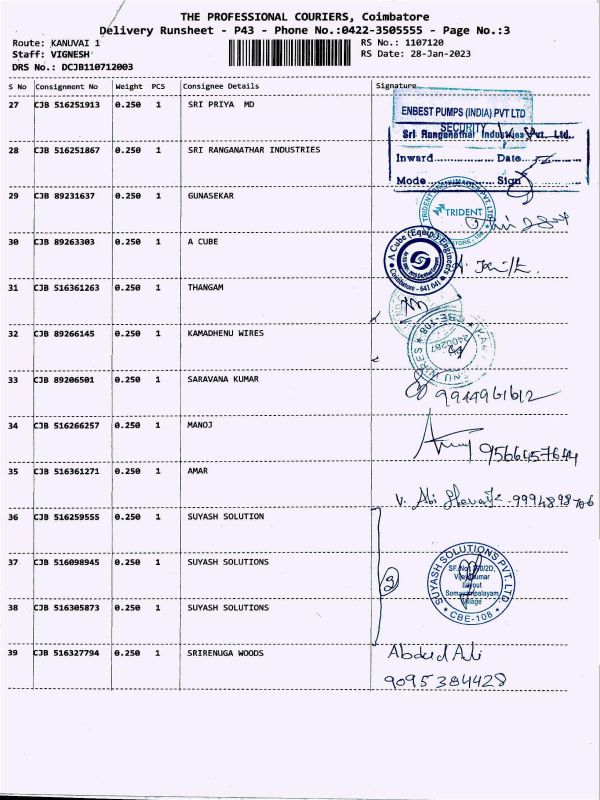 THE PROFESSIONAL COURIERS, Coimbatore
Delivery Runsheet - P43 - Phone No.:0422-3505555 - Page No.:3
Route: KANUVAI 1
Staff: VIGNESH
DRS No.: DCJB110712003
RS No.: 1107120
RS Date: 28-Jan-2023
S No Consignment No Weight PCS Consignee Details Signature
27 CJB 516251913 0.250 1 SRI PRIYA MD
ENBEST PUMPS (INDIA) PVT LTD
SECURITY
28 CJB 516251867 0.250 1 SRI RANGANATHAR INDUSTRIES
Sri Ranganathar Industries Pvt. Ltd.
Inward............... Date...............
Mode............... Sign...............
29 CJB 89231637 0.250 1 GUNASEKAR
TRIDENT
30 CJB 89263303 0.250 1 A CUBE
A Cube (Equip.) Engineers
Coimbatore - 641 041
31 CJB 516361263 0.250 1 THANGAM
32 CJB 89266145 0.250 1 KAMADHENU WIRES
CBE-108
2400287
33 CJB 89206501 0.250 1 SARAVANA KUMAR
9944961612
34 CJB 516266257 0.250 1 MANOJ
9566457644
35 CJB 516361271 0.250 1 AMAR
36 CJB 516259555 0.250 1 SUYASH SOLUTION
37 CJB 516098945 0.250 1 SUYASH SOLUTIONS
38 CJB 516305873 0.250 1 SUYASH SOLUTIONS
3
SUYASH SOLUTIONS PVT. LTD.
Layout
Somayampalayam
Village
CBE-108
39 CJB 516327794 0.250 1 SRIRENUGA WOODS
Abdul Ali
9095384428